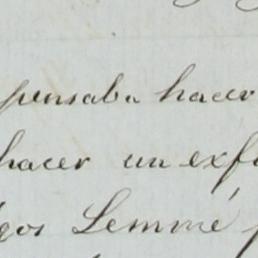 pensaba hacer
hacer un
Lemmé